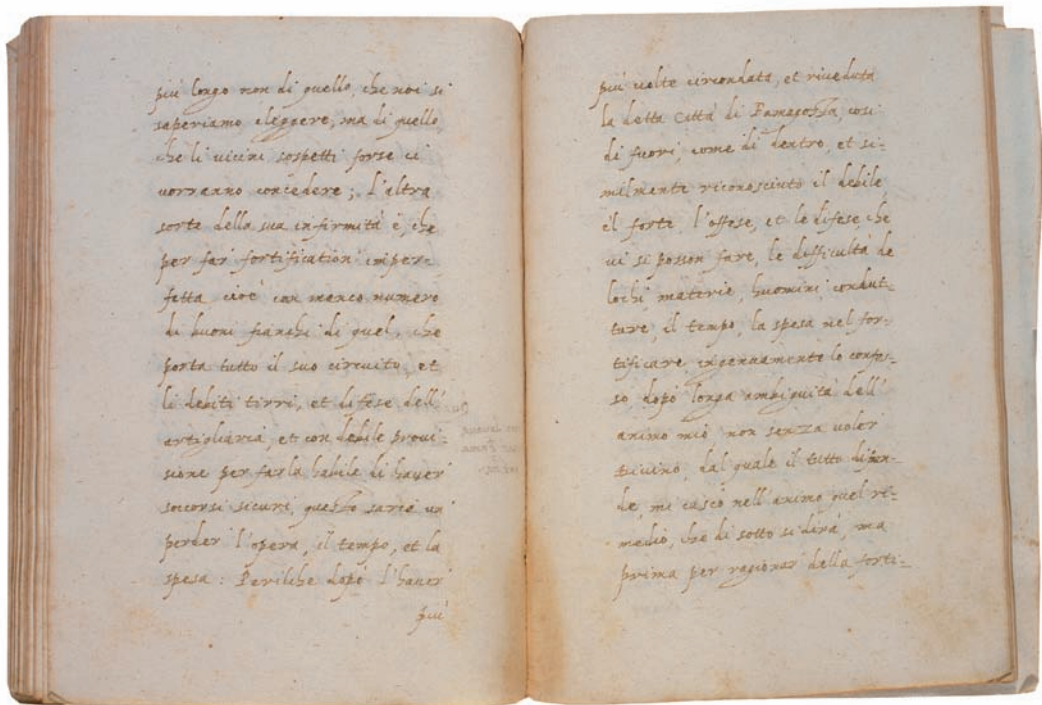 più longo non di quello, che noi si
saperiamo eleggere, ma di quello,
che li vicini sospetti forse ci
vorranno concedere; l'altra
sorte della sua infirmità è, che
per far fortification imper-
fetta, cioè con manco numero
di buoni fianchi di quel, che
porta tutto il suo circuito, et
li debiti tirri, et difese dell'
artigliaria, et con debile provi-
sione per farla habile di haver
soccorsi sicuri, questo saria un
perder l'opera, il tempo, et la
spesa: Perilche dopò l'haver
più
più volte circondata, et riveduta
la detta Città di Famagosta, cosi
di fuori, come di dentro, et si-
milmente riconosciuto il debile,
el forte, l'offese, et le difese, che
vi si posson fare, le difficultà de
lochi, materie, huomini, condut-
ture, il tempo, la spesa nel for-
tificare, ingenuamente lo confes-
so, dopò longa ambiguità dell'
animo mio, non senza voler
divino, dal quale il tutto dipen-
de, mi cascò nell'animo quel ri-
medio, che di sotto si dirà, ma
prima per ragionar della forti-